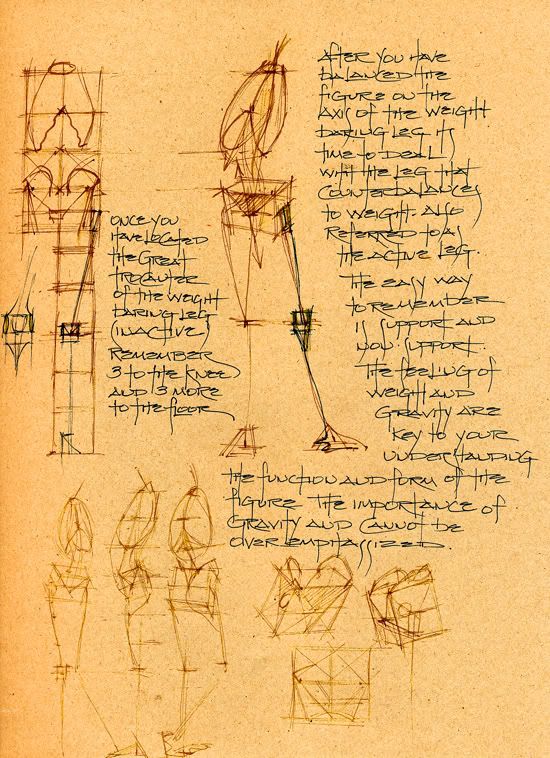 ONCE YOU
HAVE LOCATED
THE GREAT
TROCANTER
OF THE WEIGHT
BARING LEG
(INACTIVE)
REMEMBER
3 TO THE KNEE
AND 3 MORE
TO THE FLOOR
AFTER YOU HAVE
BALANCED THE
FIGURE ON THE
AXIS OF THE WEIGHT
BARING LEG ITS
TIME TO DEAL
WITH THE LEG THAT
COUNTERBALANCES
TO WEIGHT. ALSO
REFERRED TO AS
THE ACTIVE LEG.
THE EASY WAY
TO REMEMBER
IS SUPPORT AND
NON SUPPORT.
THE FEELING OF
WEIGH AND
GRAVITY ARE
KEY TO YOUR
UNDERSTANDING
THE FUNCTION AND FORM OF THE
FIGURE THE IMPORTANCE OF
GRAVITY AND CANNOT BE
OVER EMPHASSIZED.